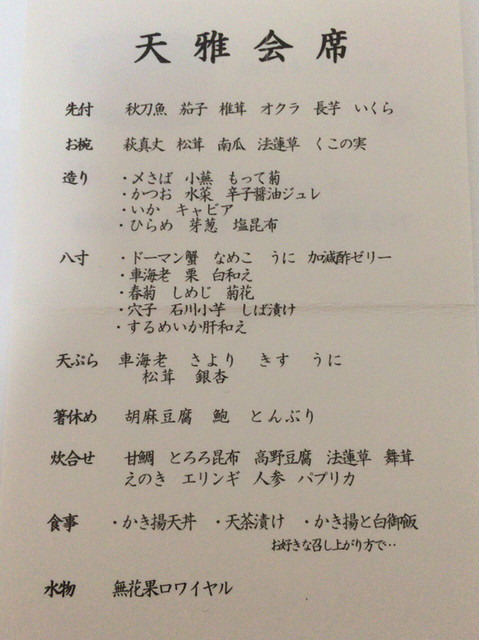 天雅会席
先付 秋刀魚 茄子 椎茸 オクラ 長芋 いくら
お椀 萩真丈 松茸 南瓜 法蓮草 くこの実
造り ・〆さば 小蕪 もって菊
・かつお 水菜 辛子醤油ジュレ
・いか キャビア
・ひらめ 芽葱 塩昆布
八寸 ・ドーマン蟹 なめこ うに 加減酢ゼリー
・車海老 栗 白和え
・春菊 しめじ 菊花
・穴子 石川小芋 しば漬け
・するめいか肝和え
天ぷら 車海老 さより きす うに
松茸 銀杏
箸休め 胡麻豆腐 鮑 とんぶり
炊合せ 甘鯛 とろろ昆布 高野豆腐 法蓮草 舞茸
えのき エリンギ 人参 パプリカ
食事 ・かき揚天丼 ・天茶漬け ・かき揚と白御飯
お好きな召し上がり方で‥
水物 無花果ロワイヤル